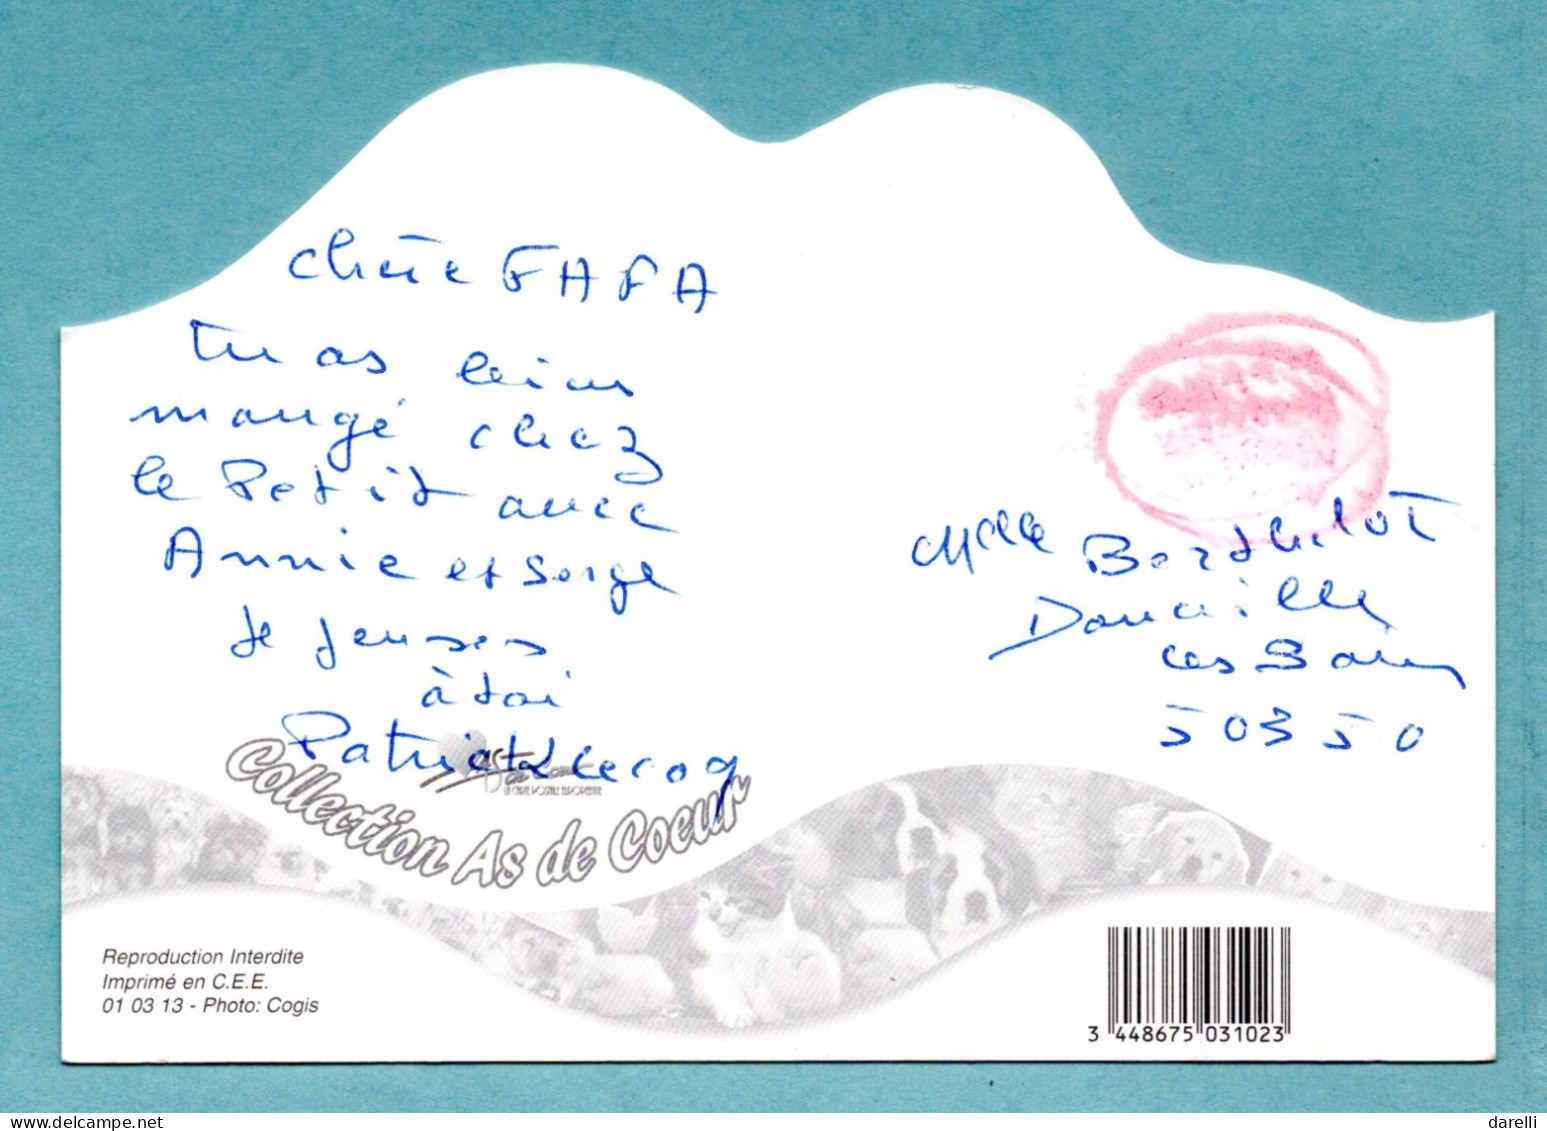 Chère FAFA
Tu as bien
mangé chez
le Petit avec
Annie et Serge
Je penses
à toi
Patrick Lecoq
Melle Berthelot
Donville
les Bains
50350
Collection As de Coeur
LA CARTE POSTALE EUROPEENNE
Reproduction Interdite
Imprimé en C.E.E.
01 03 13 - Photo: Cogis
3 448675 031023
darelli